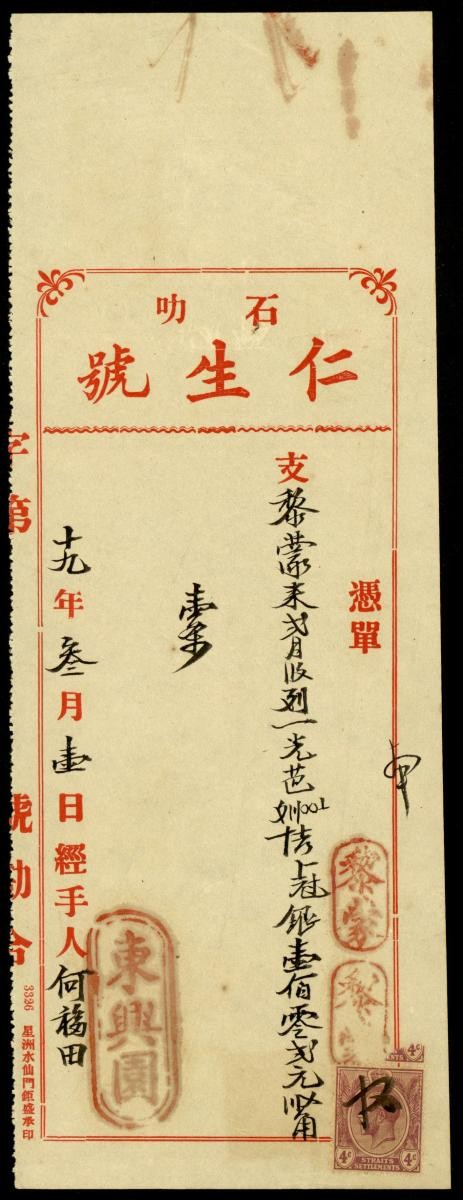 石叻
仁生號
憑單
支黎蒙来弍月收列一光芭
上冠銀壹佰零弍元
十九年叁月壹日經手人何福田
東興園
黎蒙
黎蒙
字第
號勘合
3336 星洲水仙門鉅盛承印
4c
4c
4c
STRAITS
SETTLEMENTS